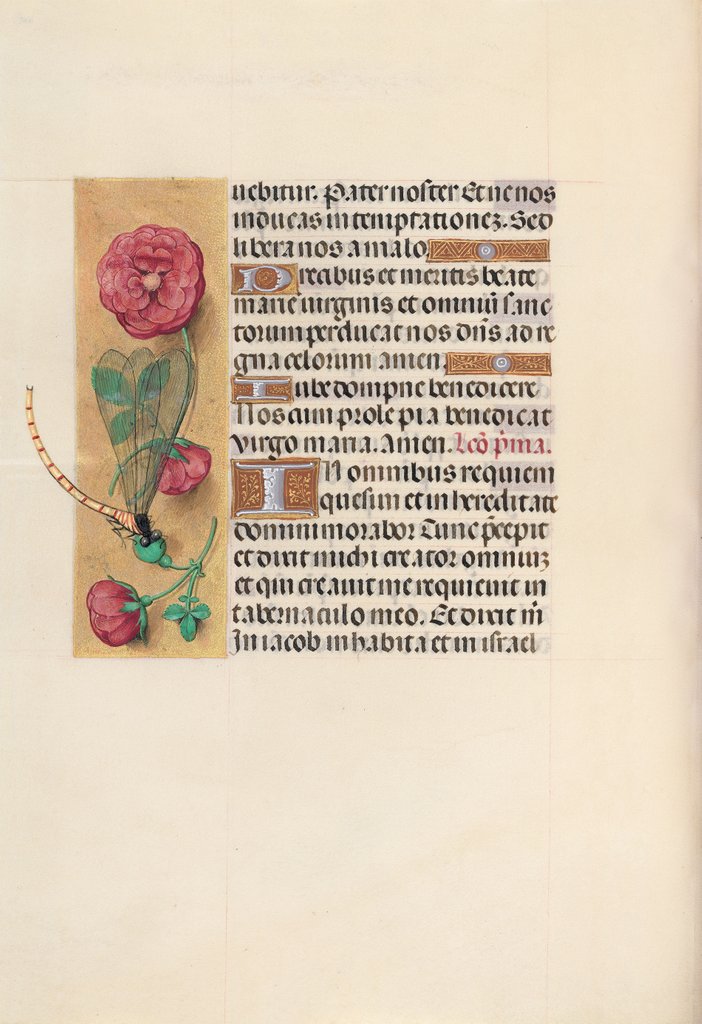 uebitur. Pater noster Et ne nos
inducas in temptationez. Sed
libera nos a malo
Precibus et meritis beate
marie uirginis et omniū sanc
torum perducat nos dn̄s ad re
gna celorum amen.
Iube dompne benedicere
Nos cum prole pia benedicat
virgo maria. Amen. Lcō p̄ma.
IN omnibus requiem
quesiui et in hereditate
domini morabor Tunc p̄cepit
et dixit michi creator omniuz
et qui creauit me requieuit in
tabernaculo meo. Et dixit m̄
In iacob inhabita et in israel